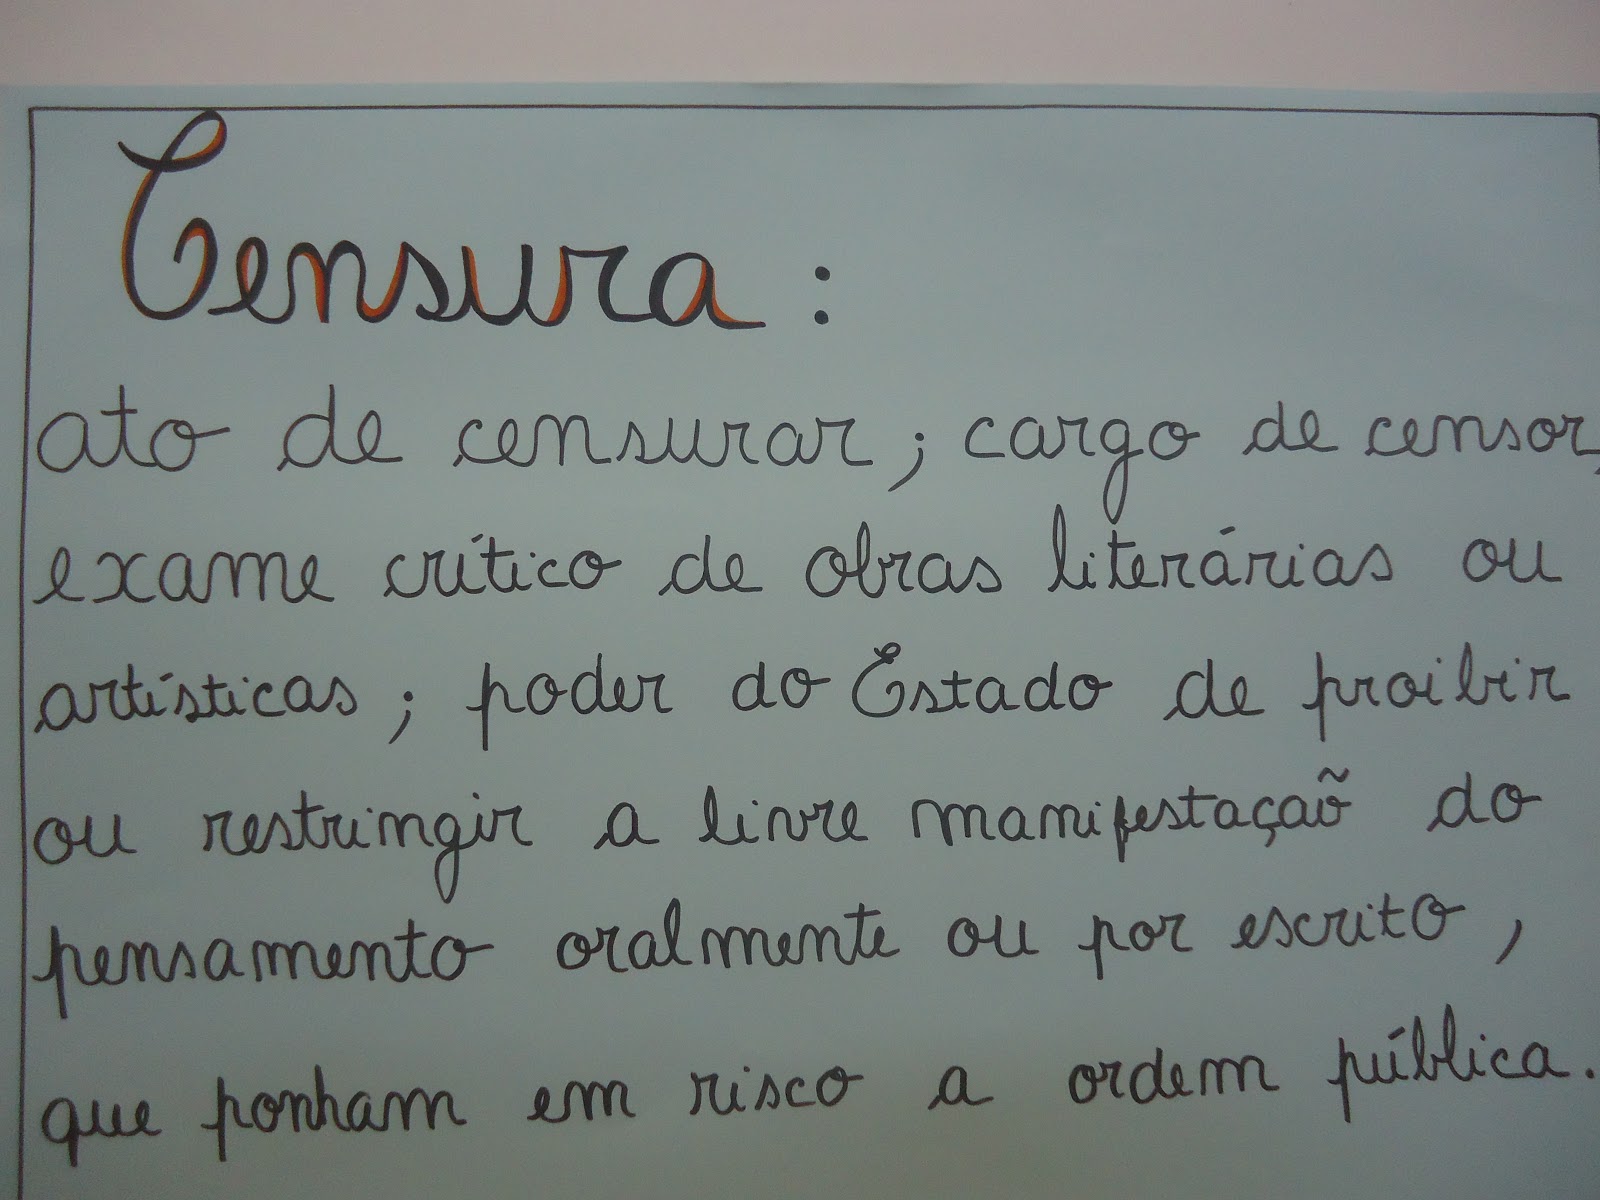 Censura :
ato de censurar ; cargo de censor,
exame crítico de obras literárias ou
artísticas ; poder do Estado de proibir
ou restringir a livre manifestaçaõ do
pensamento oralmente ou por escrito ,
que ponham em risco a ordem pública.